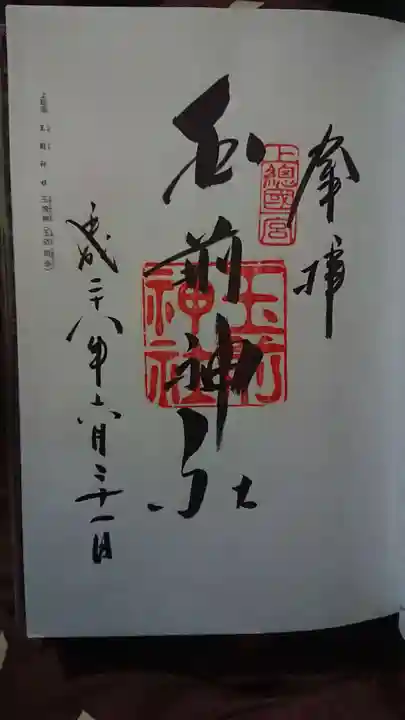 奉拝
上總國一宮
玉前神社
玉前
神社
平成二十八年六月二十一日